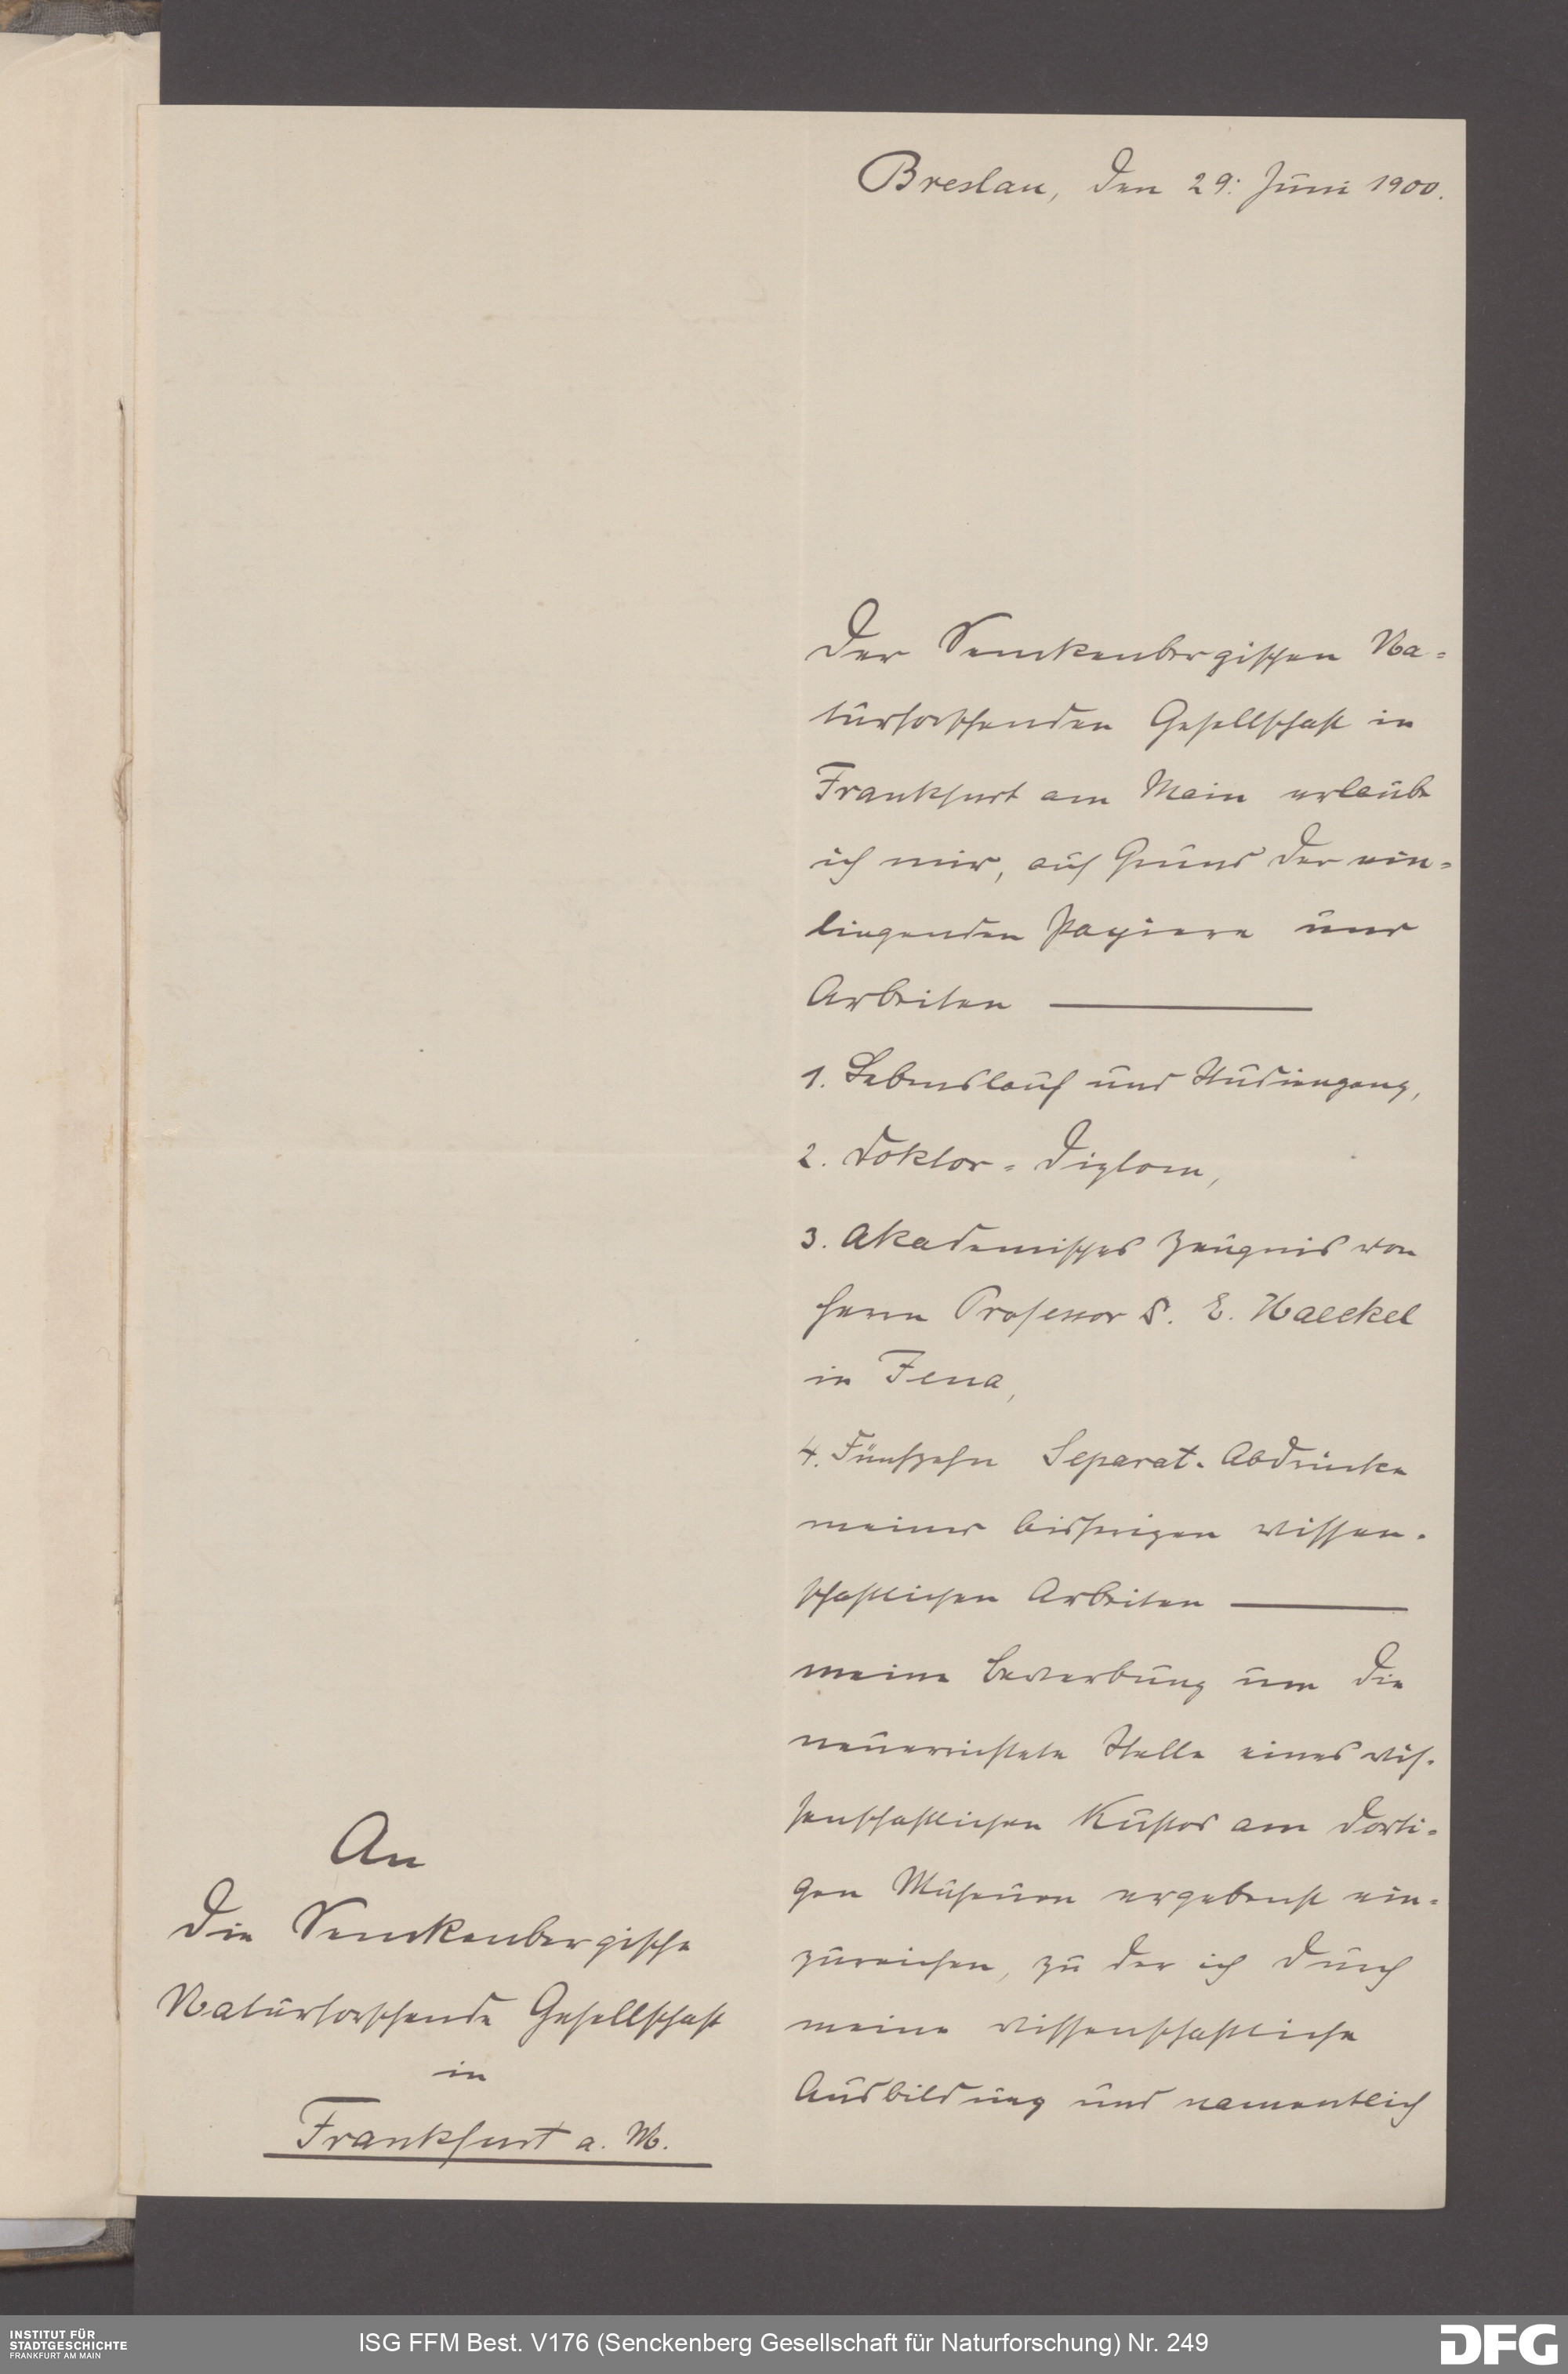 Breslau, den 29. Juni 1900.
Der Senckenbergischen Na=
turforschenden Gesellschaft in
Frankfurt am Main erlaube
ich mir, auf Grund der ein=
liegenden Papiere und
Arbeiten ———
1. Lebenslauf und Studiengang,
2. Doktor=Diplom,
3. Akademisches Zeugnis von
Herrn Professor D. E. Haeckel
in Jena,
4. Fünfzehn Separat-Abdrücke
meiner bisherigen wissen-
schaftlichen Arbeiten ———
meine Bewerbung um die
neuerrichtete Stelle eines wis-
senschaftlichen Kustos am dorti=
gen Museum ergebenst ein=
zureichen, zu der ich durch
meine wissenschaftliche
Ausbildung und namentlich
An
die Senckenbergische
Naturforschende Gesellschaft
in
Frankfurt a. M.
INSTITUT FÜR
STADTGESCHICHTE
FRANKFURT AM MAIN
ISG FFM Best. V176 (Senckenberg Gesellschaft für Naturforschung) Nr. 249
DFG